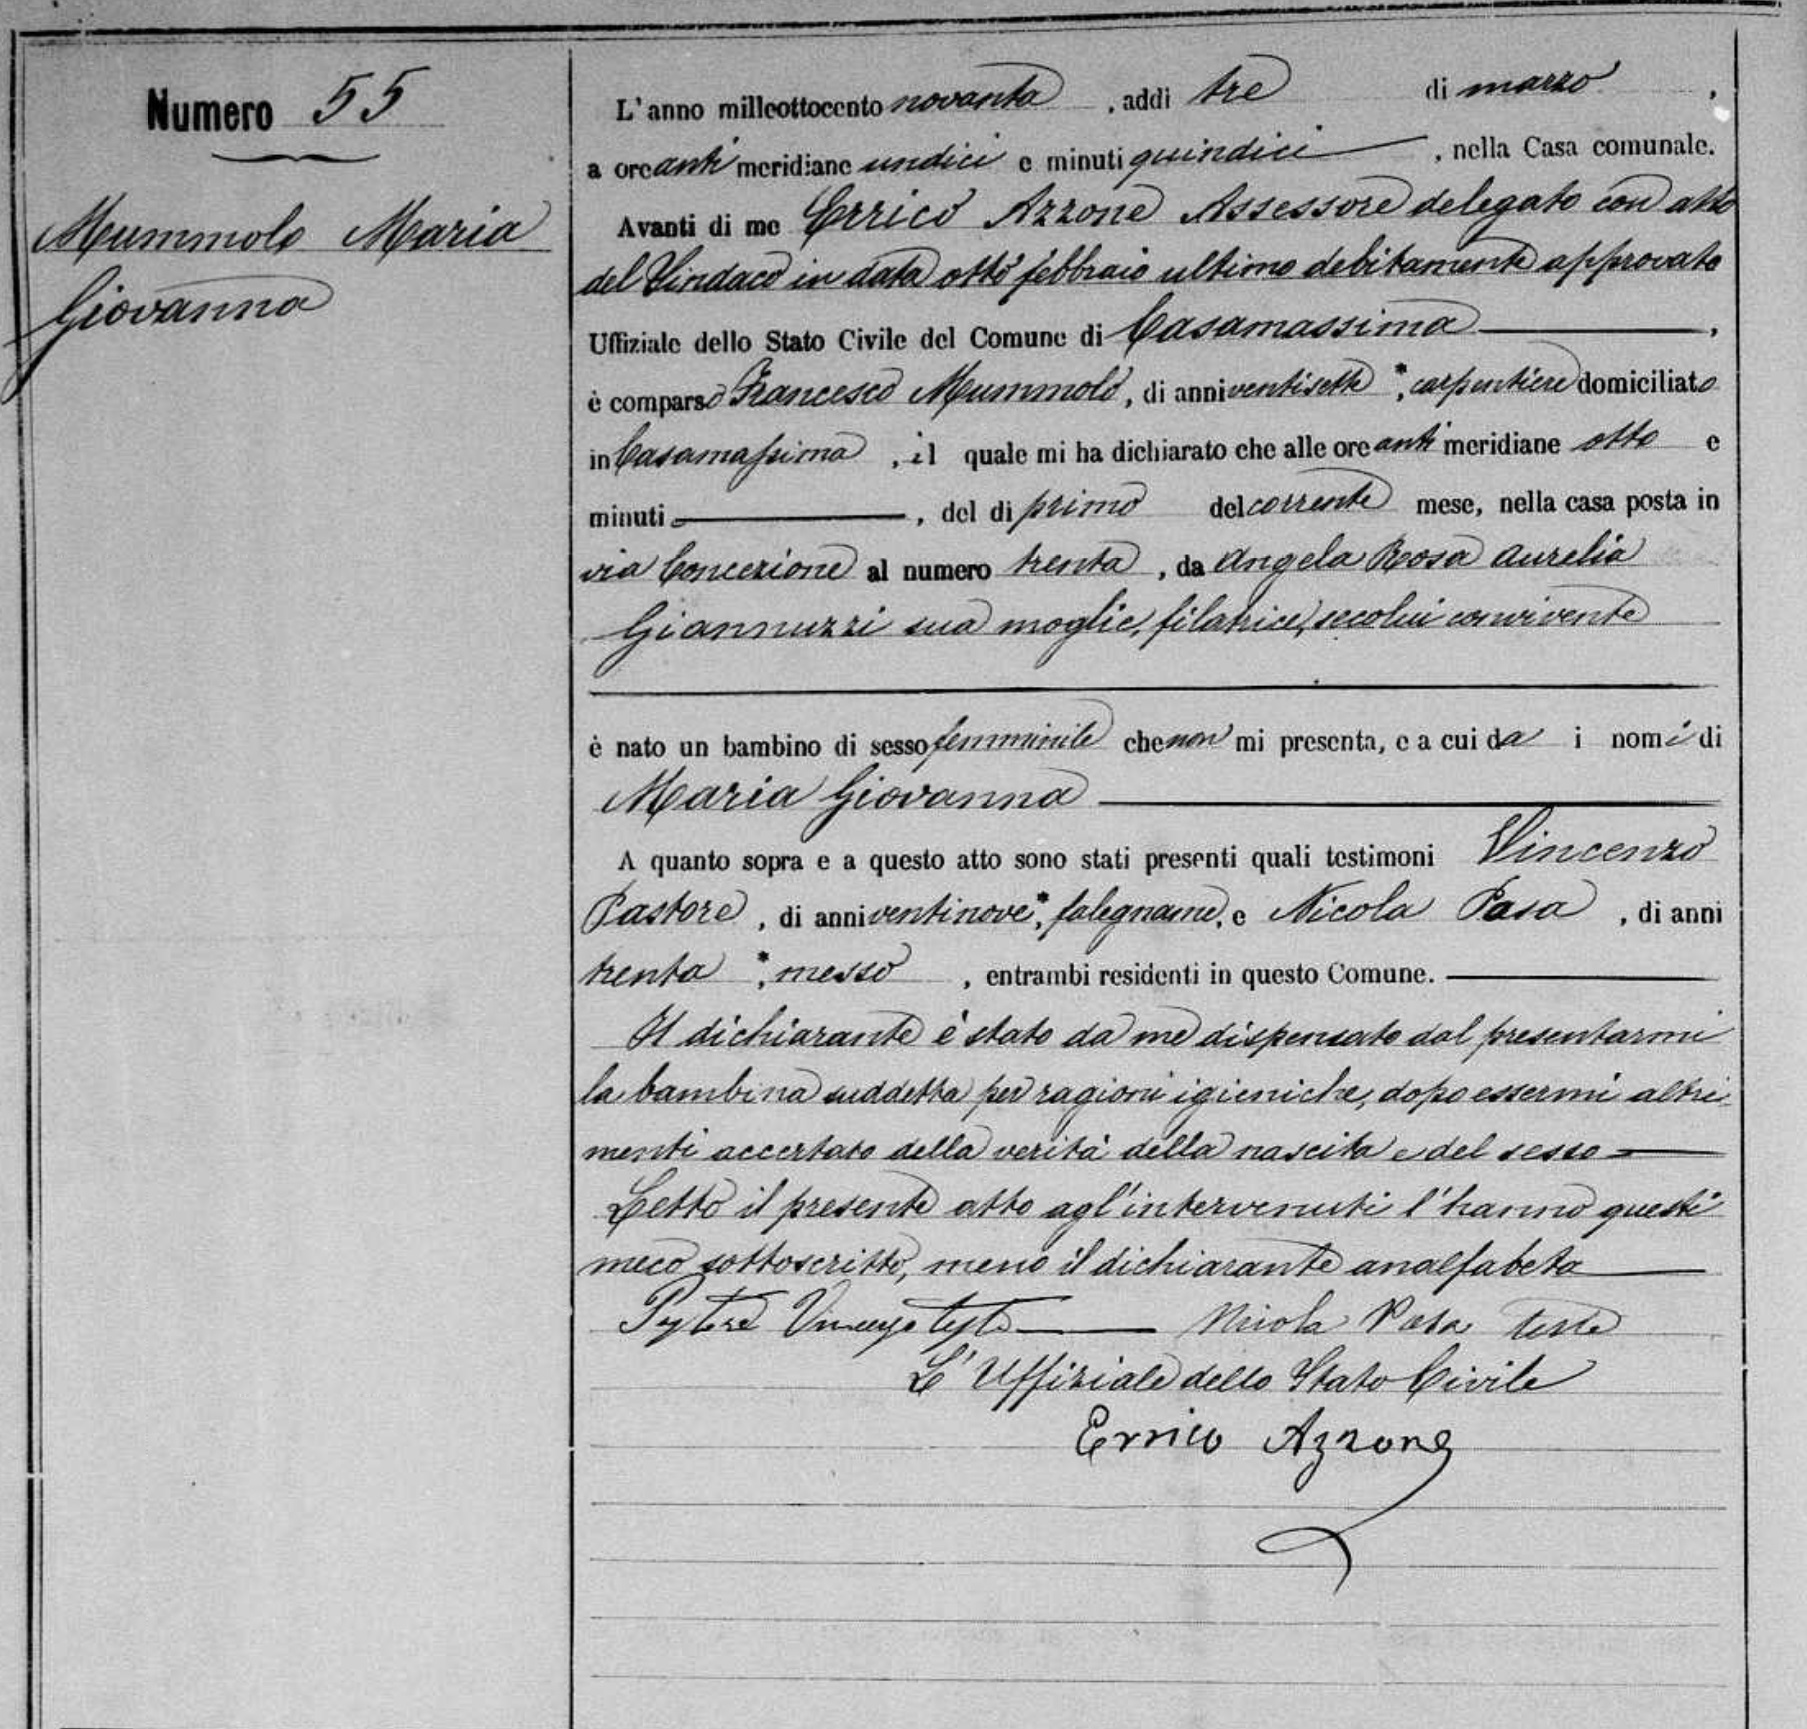 Numero 55
Mummolo Maria
Giovanna
L'anno milleottocento novanta, addì tre di marzo,
a ore anti meridiane undici e minuti quindici, nella Casa comunale.
Avanti di me Errico Azzone Assessore delegato con atto
del Sindaco in data otto febbraio ultimo debitamente approvato
Uffiziale dello Stato Civile del Comune di Casamassima,
è comparso Francesco Mummolo, di anni ventisette *, carpentiere domiciliato
in Casamassima, il quale mi ha dichiarato che alle ore anti meridiane otto e
minuti —, del dì primo del corrente mese, nella casa posta in
via Concezione al numero trenta, da Angela Rosa Aurelia
Giannuzzi sua moglie, filatrice, secolui convivente
è nato un bambino di sesso femminile che non mi presenta, e a cui da i nomi di
Maria Giovanna
A quanto sopra e a questo atto sono stati presenti quali testimoni Vincenzo
Pastore, di anni ventinove *, falegname, e Nicola Pasa, di anni
trenta *, messo, entrambi residenti in questo Comune.
Il dichiarante è stato da me dispensato dal presentarmi
la bambina suddetta per ragioni igieniche, dopo essermi altri-
menti accertato della verità della nascita e del sesso
Letto il presente atto agl'intervenuti l'hanno questi
meco sottoscritto, meno il dichiarante analfabeta
Pastore Vincenzo teste — Nicola Pasa teste
L'Uffiziale dello Stato Civile
Errico Azzone